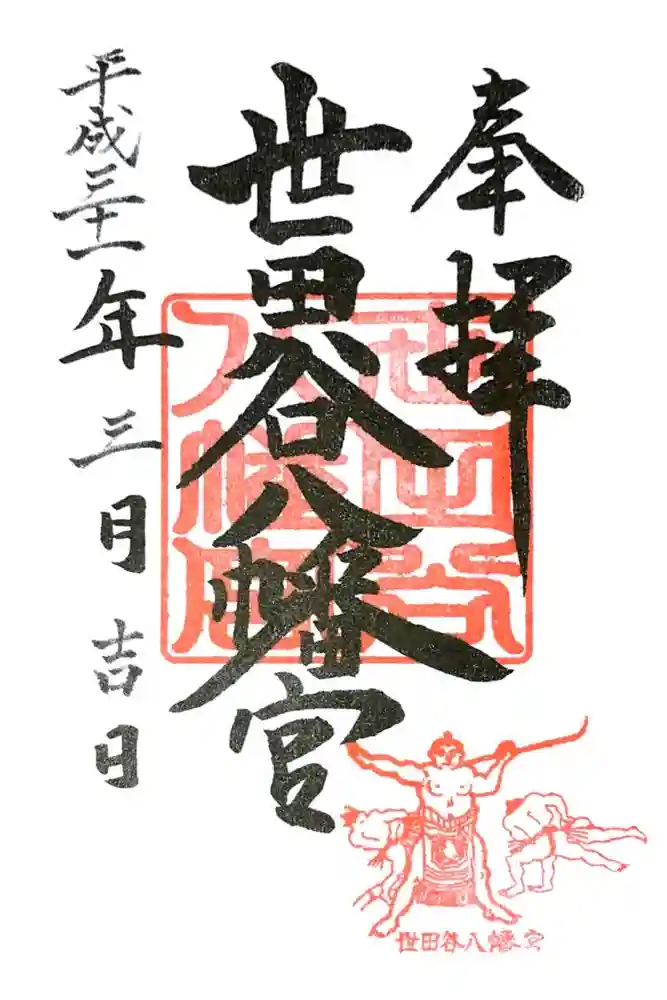 奉拝
世田谷八幡宮
平成三十一年三月吉日
世田谷
八幡宮
世田谷八幡宮